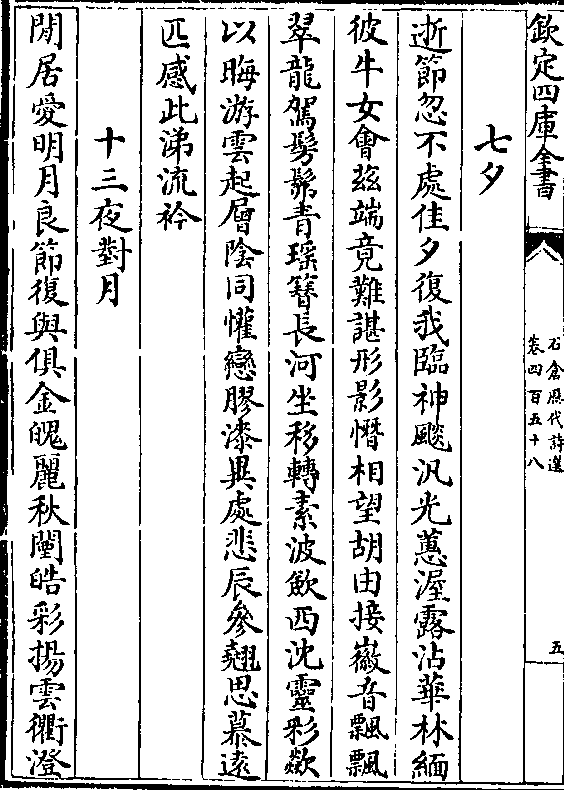 欽定四庫全書
石倉歷代詩選
卷四百五十八
五
七夕
逝節忽不處佳夕復我臨神飈汎光蕙渥露沾華林緬
彼牛女會茲端竟難諶形影憯相望胡由接徽音飄飄
翠龍駕髣髴青瑶簪長河坐移轉素波歛西沈靈彩歘
以晦游雲起層陰同懽戀膠漆異處悲辰參翹思慕遠
匹感此涕流衿
十三夜對月
閒居愛明月良節復與俱金魄麗秋闉皓彩揚雲衢澄